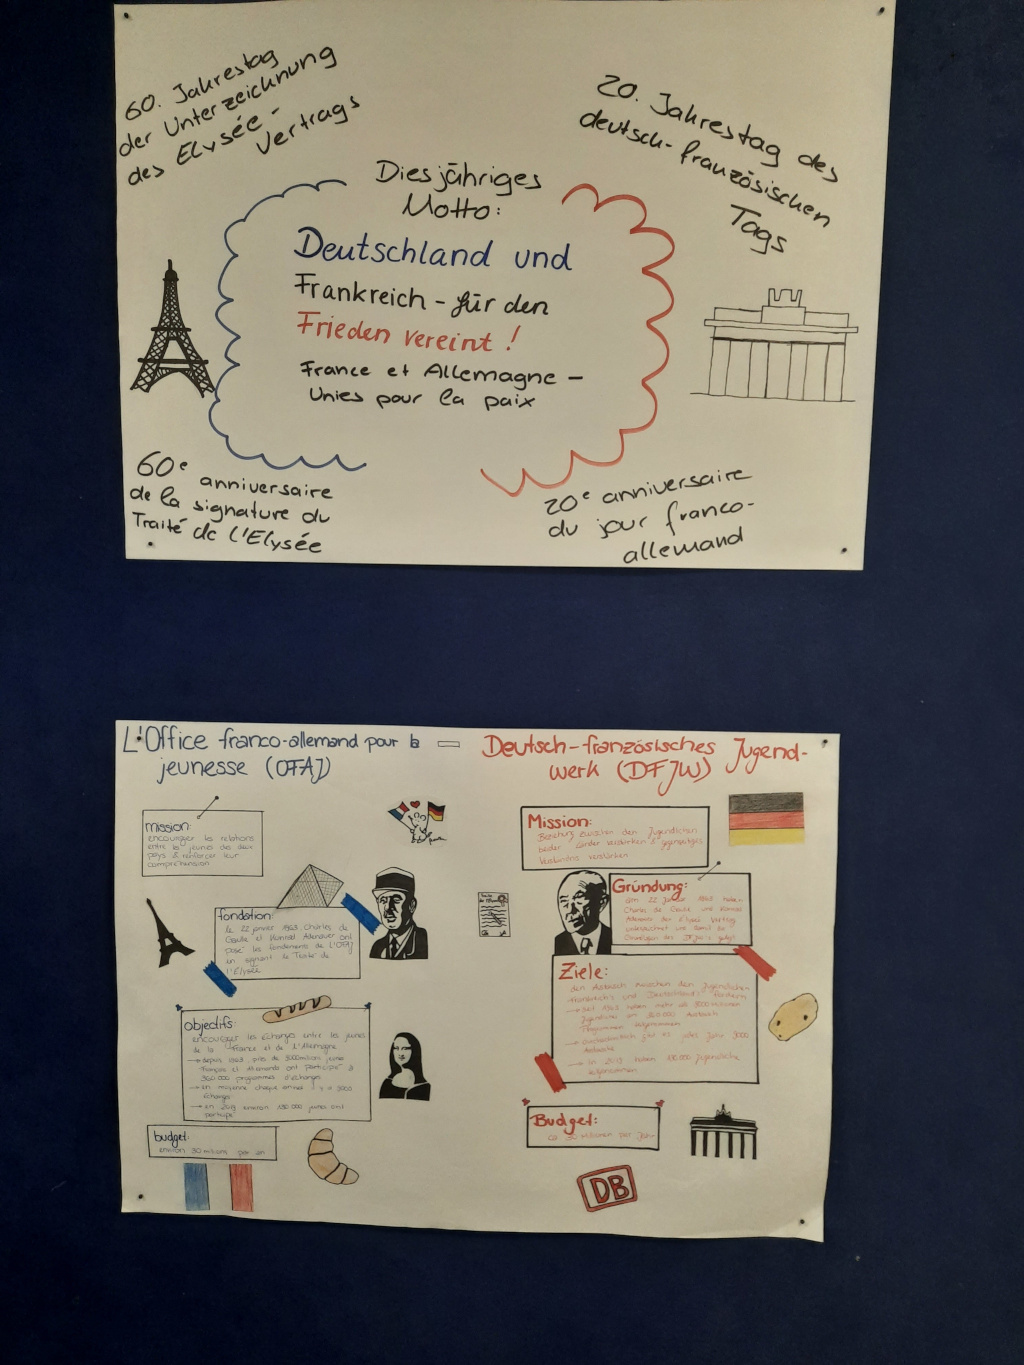 60. Jahrestag
der Unterzeichnung
des Elysée-
Vertrags
20. Jahrestag des
deutsch-französischen
Tags
Diesjähriges
Motto:
Deutschland und
Frankreich - für den
Frieden vereint!
France et Allemagne -
Unies pour la paix
60e anniversaire
de la signature du
Traité de L'Elysée
20e anniversaire
du jour franco-
allemand
L'Office franco-allemand pour la
jeunesse (OFAJ)
Deutsch-französisches Jugend-
werk (DFJW)
mission:
encourager les relations
entre les jeunes des deux
pays & renforcer leur
compréhension
fondation:
le 22 janvier 1963 Charles de
Gaulle et Konrad Adenauer ont
posé les fondements de L'OFAJ
en signant le Traité de
l'Élysée
objectifs:
encourager les échanges entre les jeunes
de la France et de l'Allemagne
→ depuis 1963, près de
Français et Allemands ont participé à
programmes d'échanges
→ en moyenne chaque
échanges
→ en 2019 environ 190 000 jeunes ont
participé
budget:
environ 30 millions par an
Mission:
Beziehung zwischen den Jugendlichen
beider Länder verstärken & gegenseitiges
Verständnis verstärken
Gründung:
am 22 Januar 1963 haben
Charles de Gaulle und Konrad
Adenauer den Elysée Vertrag
unterzeichnet und damit die
gelegt
Ziele:
den Austausch zwischen den Jugendlichen
Frankreichs und Deutschlands fördern
→ seit 1963 haben mehr als
Jugendliche an Austausch
Programmen teilgenommen
→ durchschnittlich gibt es jedes Jahr
→ in 2019 haben Jugendliche
teilgenommen
Budget:
ca 30 Millionen pro Jahr
DB